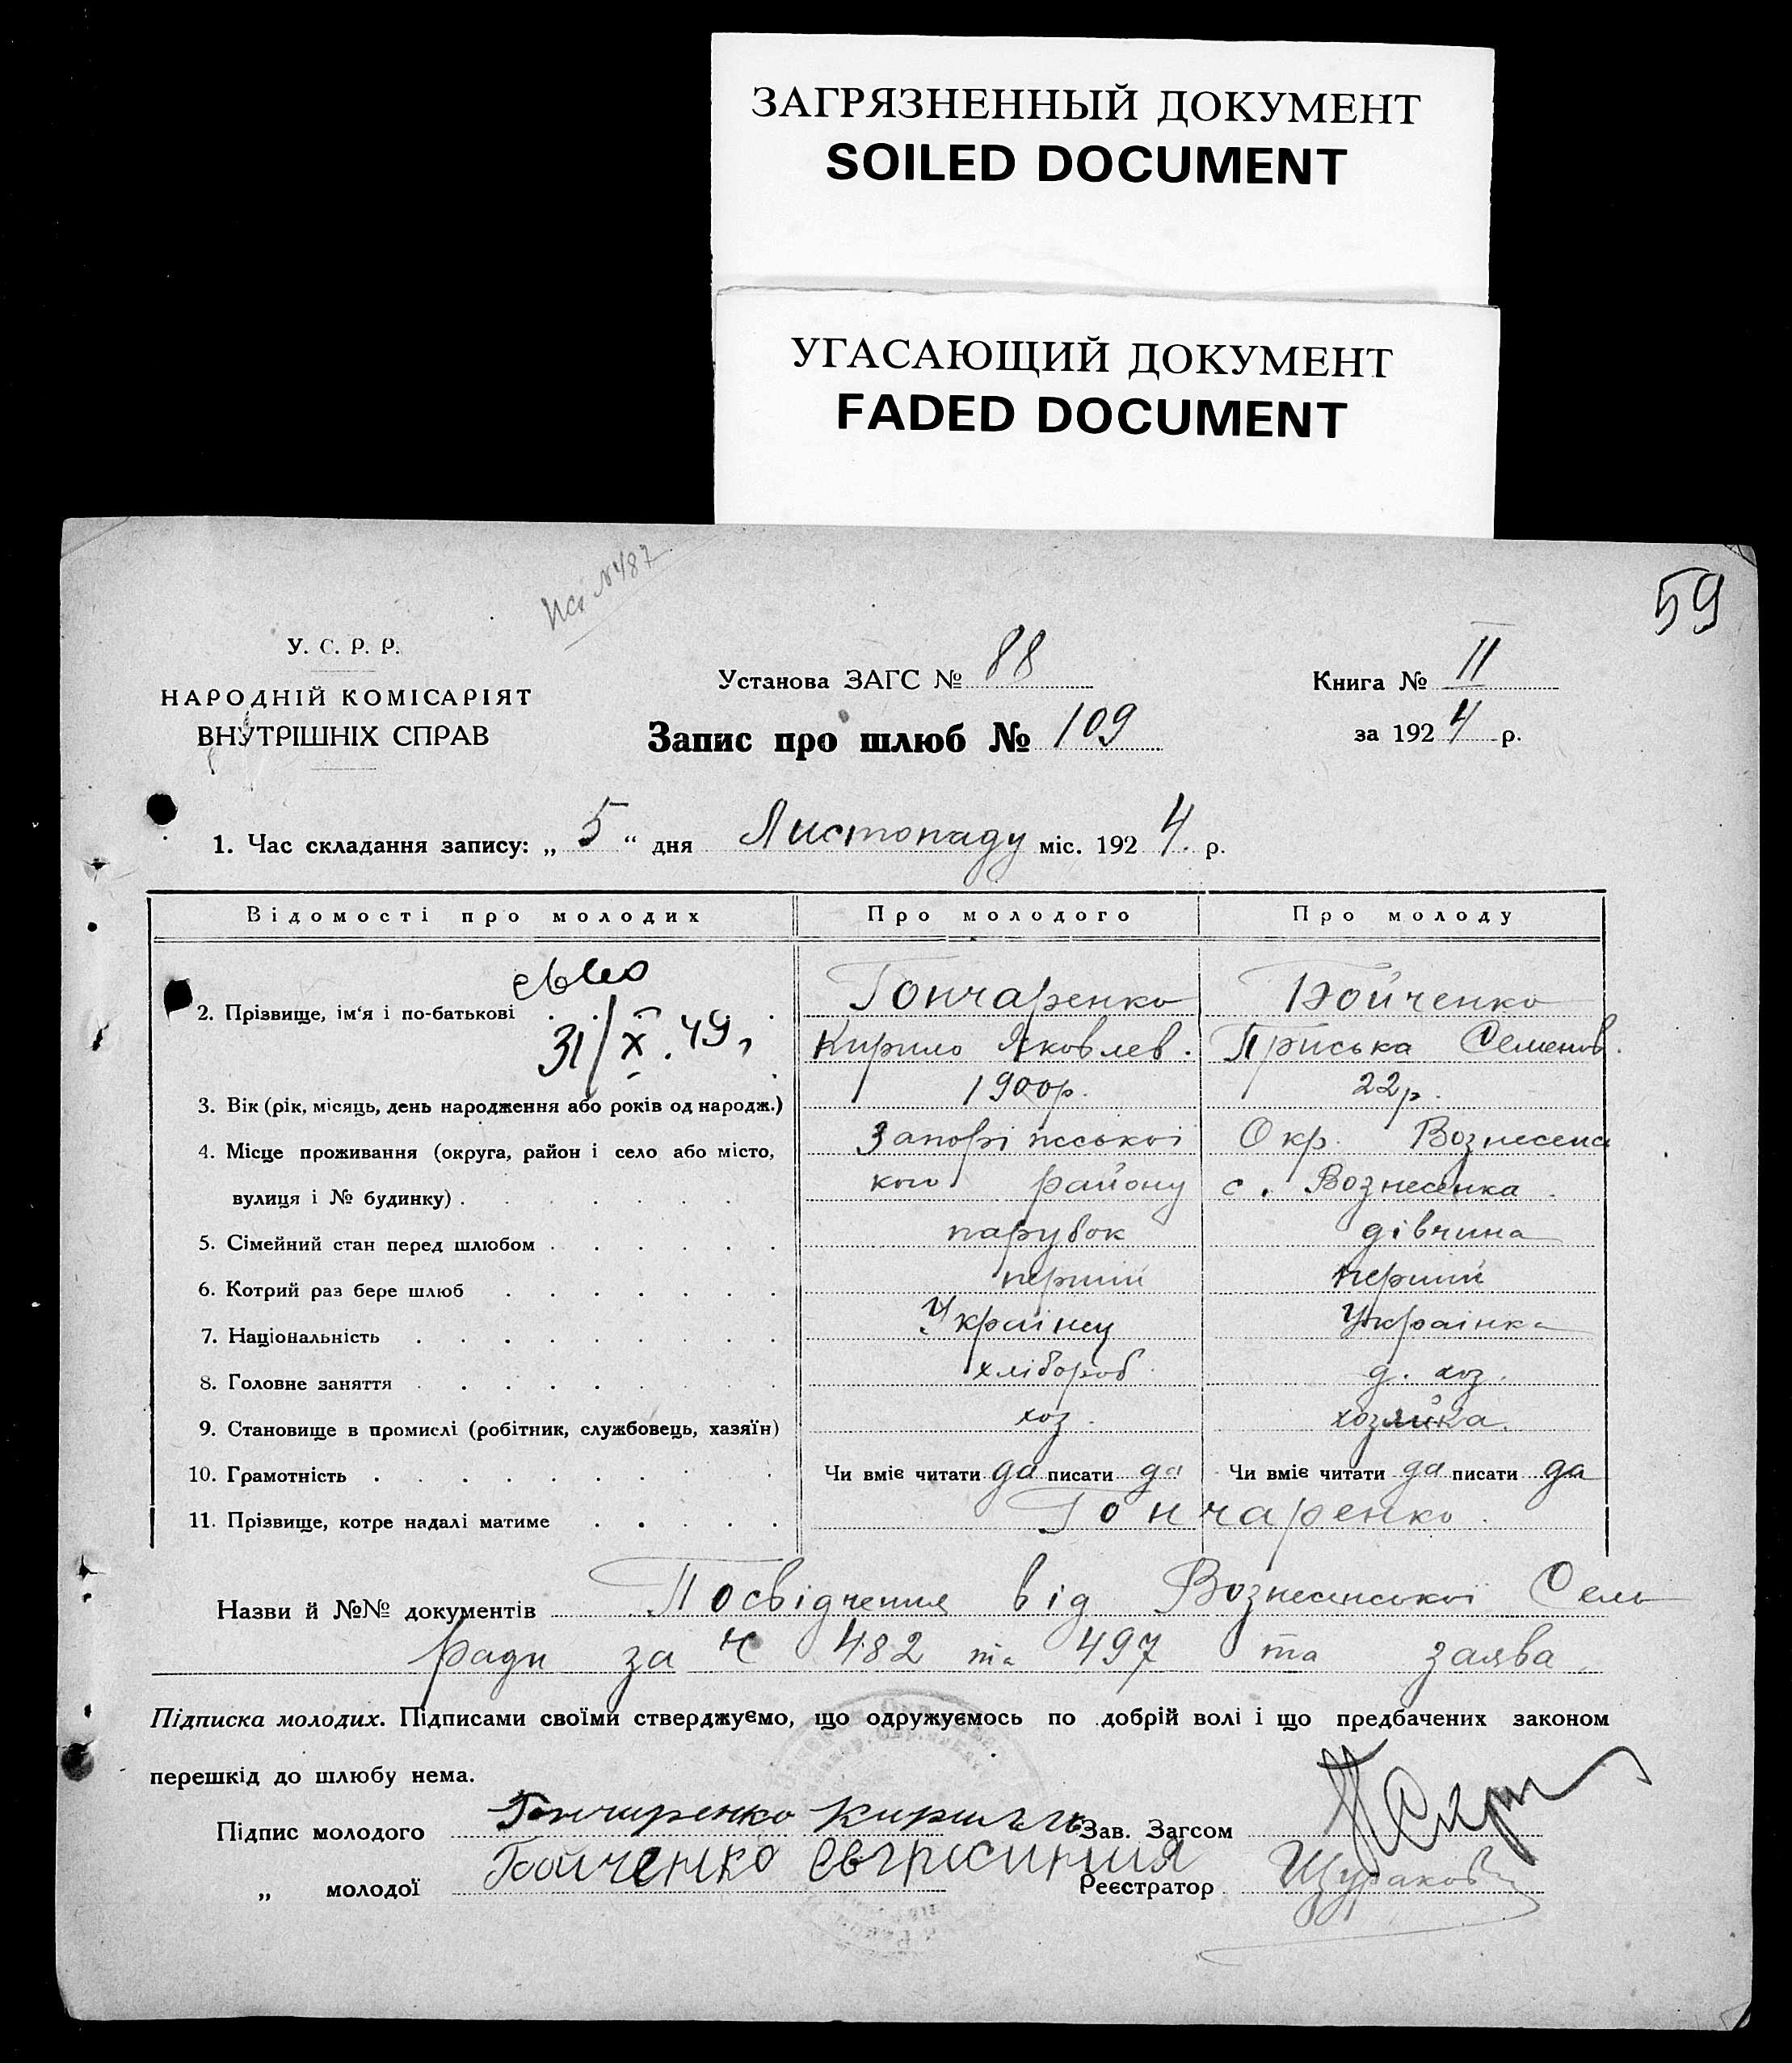 ЗАГРЯЗНЕННЫЙ ДОКУМЕНТ
SOILED DOCUMENT
УГАСАЮЩИЙ ДОКУМЕНТ
FADED DOCUMENT
№487
59
У. С. Р. Р.
НАРОДНІЙ КОМІСАРІЯТ
ВНУТРІШНІХ СПРАВ
Установа ЗАГС № 88
Запис про шлюб № 109
Книга № II
за 1924 р.
1. Час складання запису: „ 5 “ дня Листопаду міс. 1924. р.
Відомості про молодих Про молодого Про молоду
2. Прізвище, ім'я і по-батькові Гончаренко Бойченко
31/X.49, Кирило Яковлев. Пріська Семенов.
3. Вік (рік, місяць, день народження або років од народж.) 1900р. 22р.
4. Місце проживання (округа, район і село або місто, Запоріжської Окр. Вознесенс
вулиця і № будинку) кого району с. Вознесенка.
5. Сімейний стан перед шлюбом парубок дівчина
6. Котрий раз бере шлюб перший перший
7. Національність Українец Українка
8. Головне заняття хлібороб. д. хоз.
9. Становище в промислі (робітник, службовець, хазяїн) хоз. хозяйка.
10. Грамотність Чи вміє читати да писати да Чи вміє читати да писати да
11. Прізвище, котре надалі матиме Гончаренко.
Назви й №№ документів Посвідчення від Вознесенської Сель
ради за ч 482 та 497 та заява.
Підписка молодих. Підписами своїми стверджуємо, що одружуємось по добрій волі і що предбачених законом
перешкід до шлюбу нема.
Підпис молодого Гончаренко Зав. Загсом
„ молодої Бойченко Реєстратор